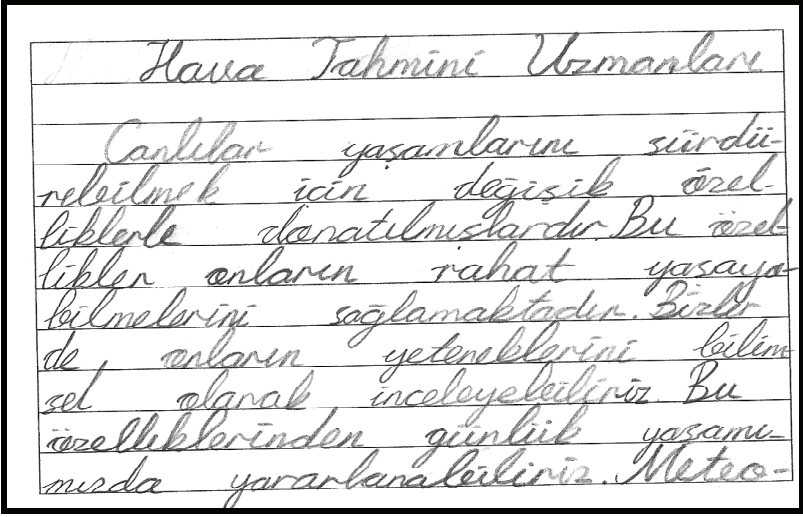 Hava Tahmini Uzmanları
Canlılar yaşamlarını sürdü-
rebilmek için değişik özel-
liklerle donatılmışlardır. Bu özel-
likler onların rahat yaşaya-
bilmelerini sağlamaktadır. Bizler
de, onların yeteneklerini bilim
sel olarak inceleyebiliriz. Bu
özelliklerinden günlük yaşamı-
mızda yararlanabiliriz. Meteo-